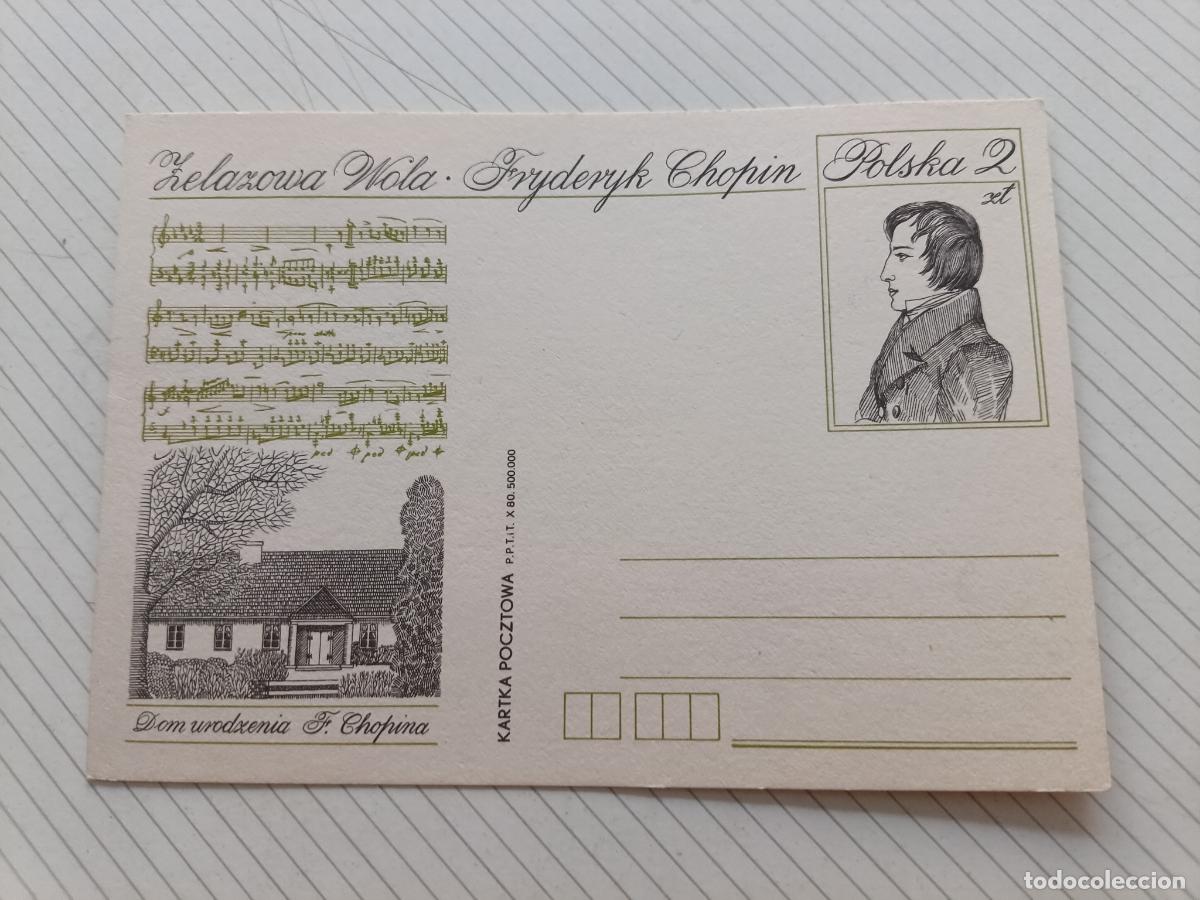 Żelazowa Wola · Fryderyk Chopin
Polska 2
zł
ped ped ped
Dom urodzenia F. Chopina
KARTKA POCZTOWA P.P.T.iT. X 80. 500.000
todocoleccion